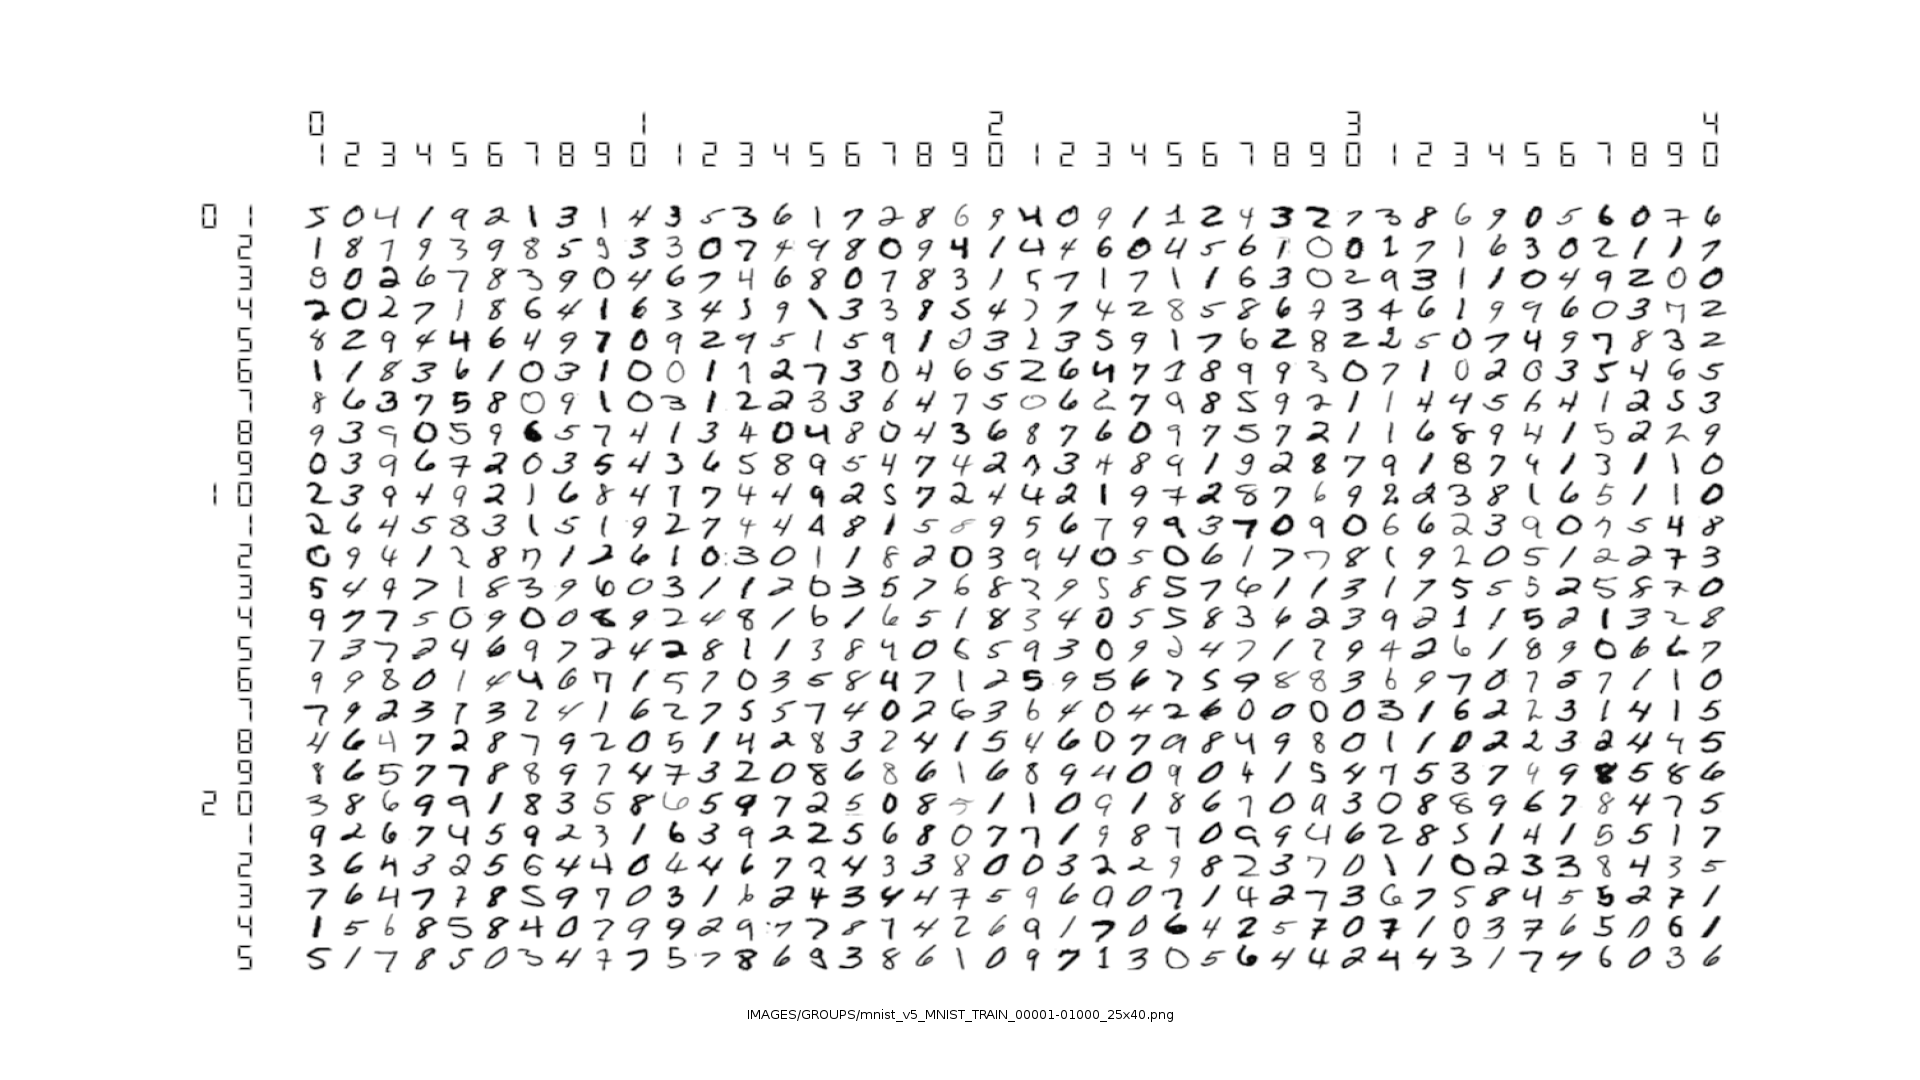 0 1 2 3 4
1 2 3 4 5 6 7 8 9 0 1 2 3 4 5 6 7 8 9 0 1 2 3 4 5 6 7 8 9 0 1 2 3 4 5 6 7 8 9 0
0 1 5 0 4 1 9 2 1 3 1 4 3 5 3 6 1 7 2 8 6 9 4 0 9 1 1 2 4 3 2 7 3 8 6 9 0 5 6 0 7 6
2 1 8 7 9 3 9 8 5 9 3 3 0 7 4 9 8 0 9 4 1 4 4 6 0 4 5 6 1 0 0 1 7 1 6 3 0 2 1 1 7
3 9 0 2 6 7 8 3 9 0 4 6 7 4 6 8 0 7 8 3 1 5 7 1 7 1 1 6 3 0 2 9 3 1 1 0 4 9 2 0 0
4 2 0 2 7 1 8 6 4 1 6 3 4 5 9 1 3 3 8 5 4 7 7 4 2 8 5 8 6 7 3 4 6 1 9 9 6 0 3 7 2
5 8 2 9 4 4 6 4 9 7 0 9 2 9 5 1 5 9 1 2 3 2 3 5 9 1 7 6 2 8 2 2 5 0 7 4 9 7 8 3 2
6 1 1 8 3 6 1 0 3 1 0 0 1 7 2 7 3 0 4 6 5 2 6 4 7 1 8 9 9 3 0 7 1 0 2 0 3 5 4 6 5
7 8 6 3 7 5 8 0 9 1 0 3 1 2 2 3 3 6 4 7 5 0 6 2 7 9 8 5 9 2 1 1 4 4 5 6 4 1 2 5 3
8 9 3 9 0 5 9 6 5 7 4 1 3 4 0 4 8 0 4 3 6 8 7 6 0 9 7 5 7 2 1 1 6 8 9 4 1 5 2 2 9
9 0 3 9 6 7 2 0 3 5 4 3 6 5 8 9 5 4 7 4 2 7 3 4 8 9 1 9 2 8 7 9 1 8 7 4 1 3 1 1 0
1 0 2 3 9 4 9 2 1 6 8 4 7 7 4 4 9 2 5 7 2 4 4 2 1 9 7 2 8 7 6 9 2 2 3 8 1 6 5 1 1 0
1 2 6 4 5 8 3 1 5 1 9 2 7 4 4 4 8 1 5 8 9 5 6 7 9 9 3 7 0 9 0 6 6 2 3 9 0 7 5 4 8
2 0 9 4 1 2 8 7 1 2 6 1 0 3 0 1 1 8 2 0 3 9 4 0 5 0 6 1 7 7 8 1 9 2 0 5 1 2 2 7 3
3 5 4 9 7 1 8 3 9 6 0 3 1 1 2 0 3 5 7 6 8 2 9 5 8 5 7 6 1 1 3 1 7 5 5 5 2 5 8 7 0
4 9 7 7 5 0 9 0 0 8 9 2 4 8 1 6 1 6 5 1 8 3 4 0 5 5 8 3 6 2 3 9 2 1 1 5 2 1 3 2 8
5 7 3 7 2 4 6 9 7 2 4 2 8 1 1 3 8 4 0 6 5 9 3 0 9 2 4 7 1 2 9 4 2 6 1 8 9 0 6 6 7
6 9 9 8 0 1 4 4 6 7 1 5 7 0 3 5 8 4 7 1 2 5 9 5 6 7 5 9 8 8 3 6 9 7 0 7 5 7 1 1 0
7 7 9 2 3 7 3 2 4 1 6 2 7 5 5 7 4 0 2 6 3 6 4 0 4 2 6 0 0 0 0 3 1 6 2 2 3 1 4 1 5
8 4 6 4 7 2 8 7 9 2 0 5 1 4 2 8 3 2 4 1 5 4 6 0 7 9 8 4 9 8 0 1 1 0 2 2 3 2 4 4 5
9 8 6 5 7 7 8 8 9 7 4 7 3 2 0 8 6 8 6 1 6 8 9 4 0 9 0 4 1 5 4 7 5 3 7 4 9 8 5 8 6
2 0 3 8 6 9 9 1 8 3 5 8 6 5 9 7 2 5 0 8 5 1 1 0 9 1 8 6 7 0 9 3 0 8 8 9 6 7 8 4 7 5
1 9 2 6 7 4 5 9 2 3 1 6 3 9 2 2 5 6 8 0 7 7 1 9 8 7 0 9 9 4 6 2 8 5 1 4 1 5 5 1 7
2 3 6 4 3 2 5 6 4 4 0 4 4 6 7 2 4 3 3 8 0 0 3 2 2 9 8 2 3 7 0 1 1 0 2 3 3 8 4 3 5
3 7 6 4 7 7 8 5 9 7 0 3 1 6 2 4 3 4 4 7 5 9 6 9 0 7 1 4 2 7 3 6 7 5 8 4 5 5 2 7 1
4 1 5 6 8 5 8 4 0 7 9 9 2 9 7 7 8 7 4 2 6 9 1 7 0 6 4 2 5 7 0 7 1 0 3 7 6 5 0 6 1
5 5 1 7 8 5 0 3 4 7 7 5 7 8 6 9 3 8 6 1 0 9 7 1 3 0 5 6 4 4 2 4 4 3 1 7 7 6 0 3 6
IMAGES/GROUPS/mnist_v5_MNIST_TRAIN_00001-01000_25x40.png